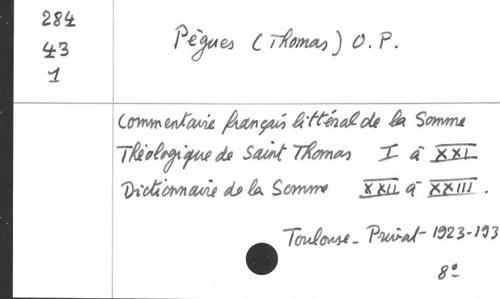 284
43
1
Pègues (Thomas) O.P.
Commentaire français littéral de la Somme
Théologique de Saint Thomas I à XXI
Dictionnaire de la Somme XXII à XXIII.
Toulouse - Privat - 1923-193
8º